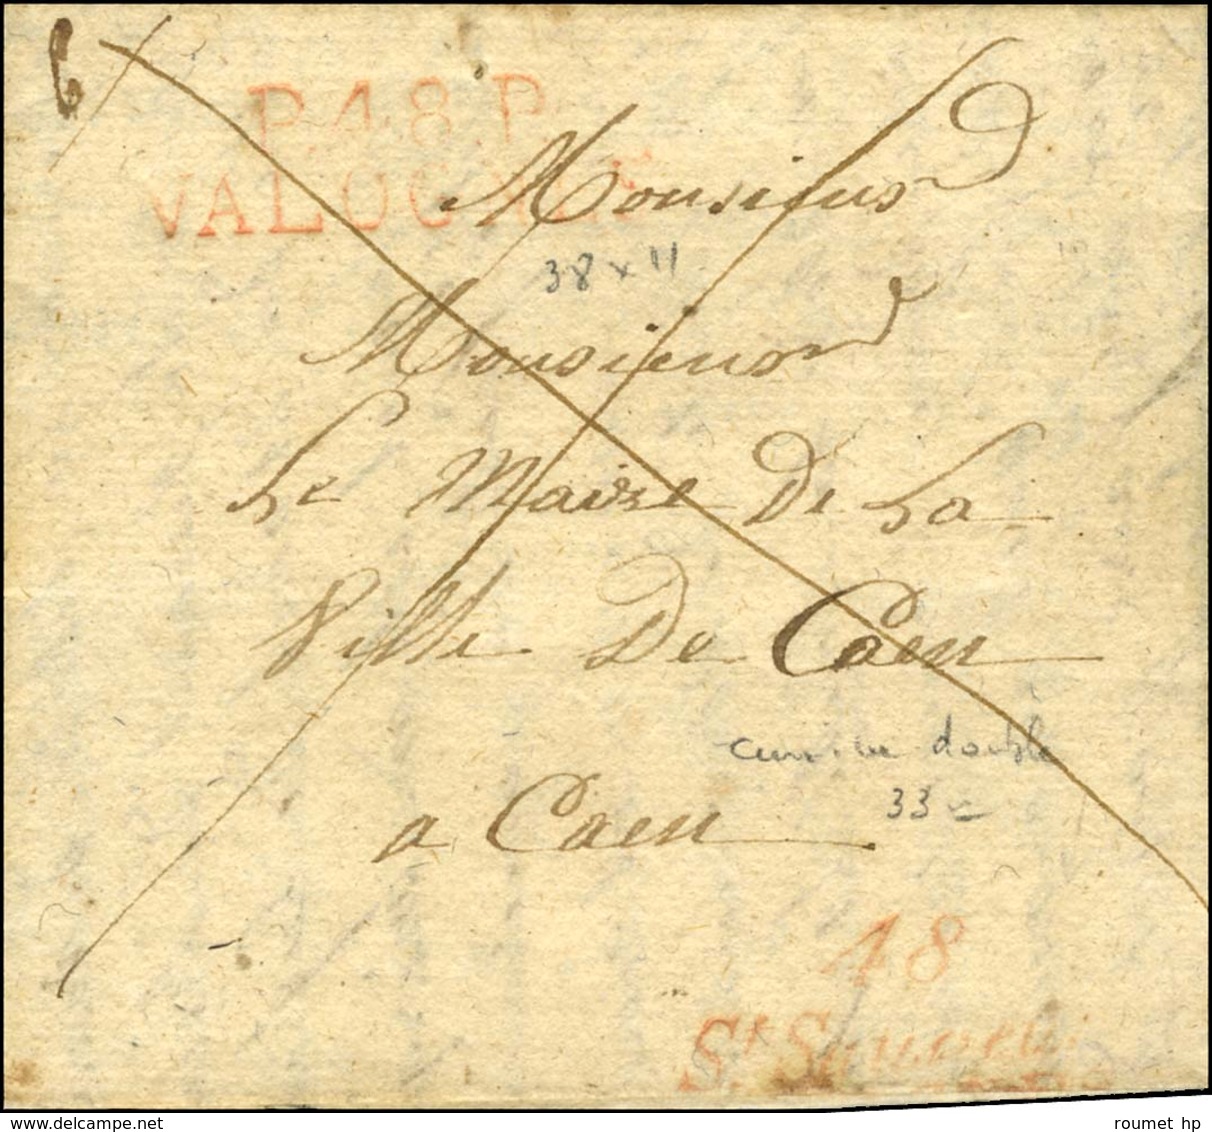 P.48.P
VALOGNES
Monsieur
38 x 11
Monsieur
Le Maire De La
Ville De Caen
cursive double
33
a Caen
48
St Sauveur
roumet hp